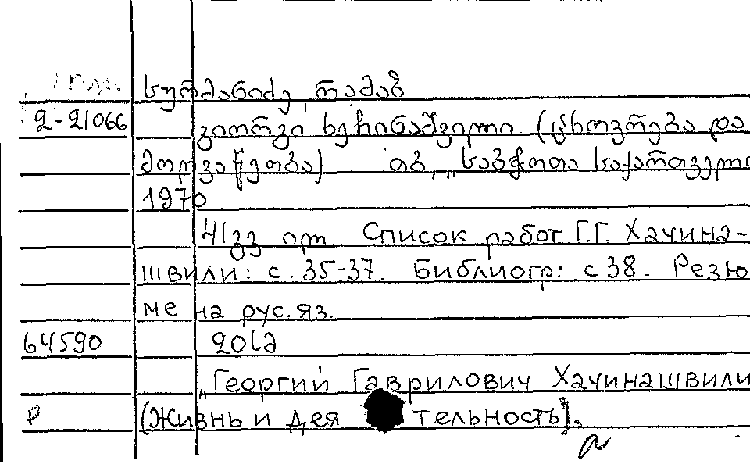 სურმანიძე რამაზ
2-21066 გიორგი ხეჩინაშვილი (ცხოვრება და
მოღვაწეობა) თბ „საბჭოთა საქართველო
1970
41 გვ ილ Список работ Г.Г. Хачина-
швили: с. 35-37. Библиогр: с 38. Резю
ме на рус. яз.
64590
„Георгий Гаврилович Хачинашвили
р (Жизнь и дея тельность].